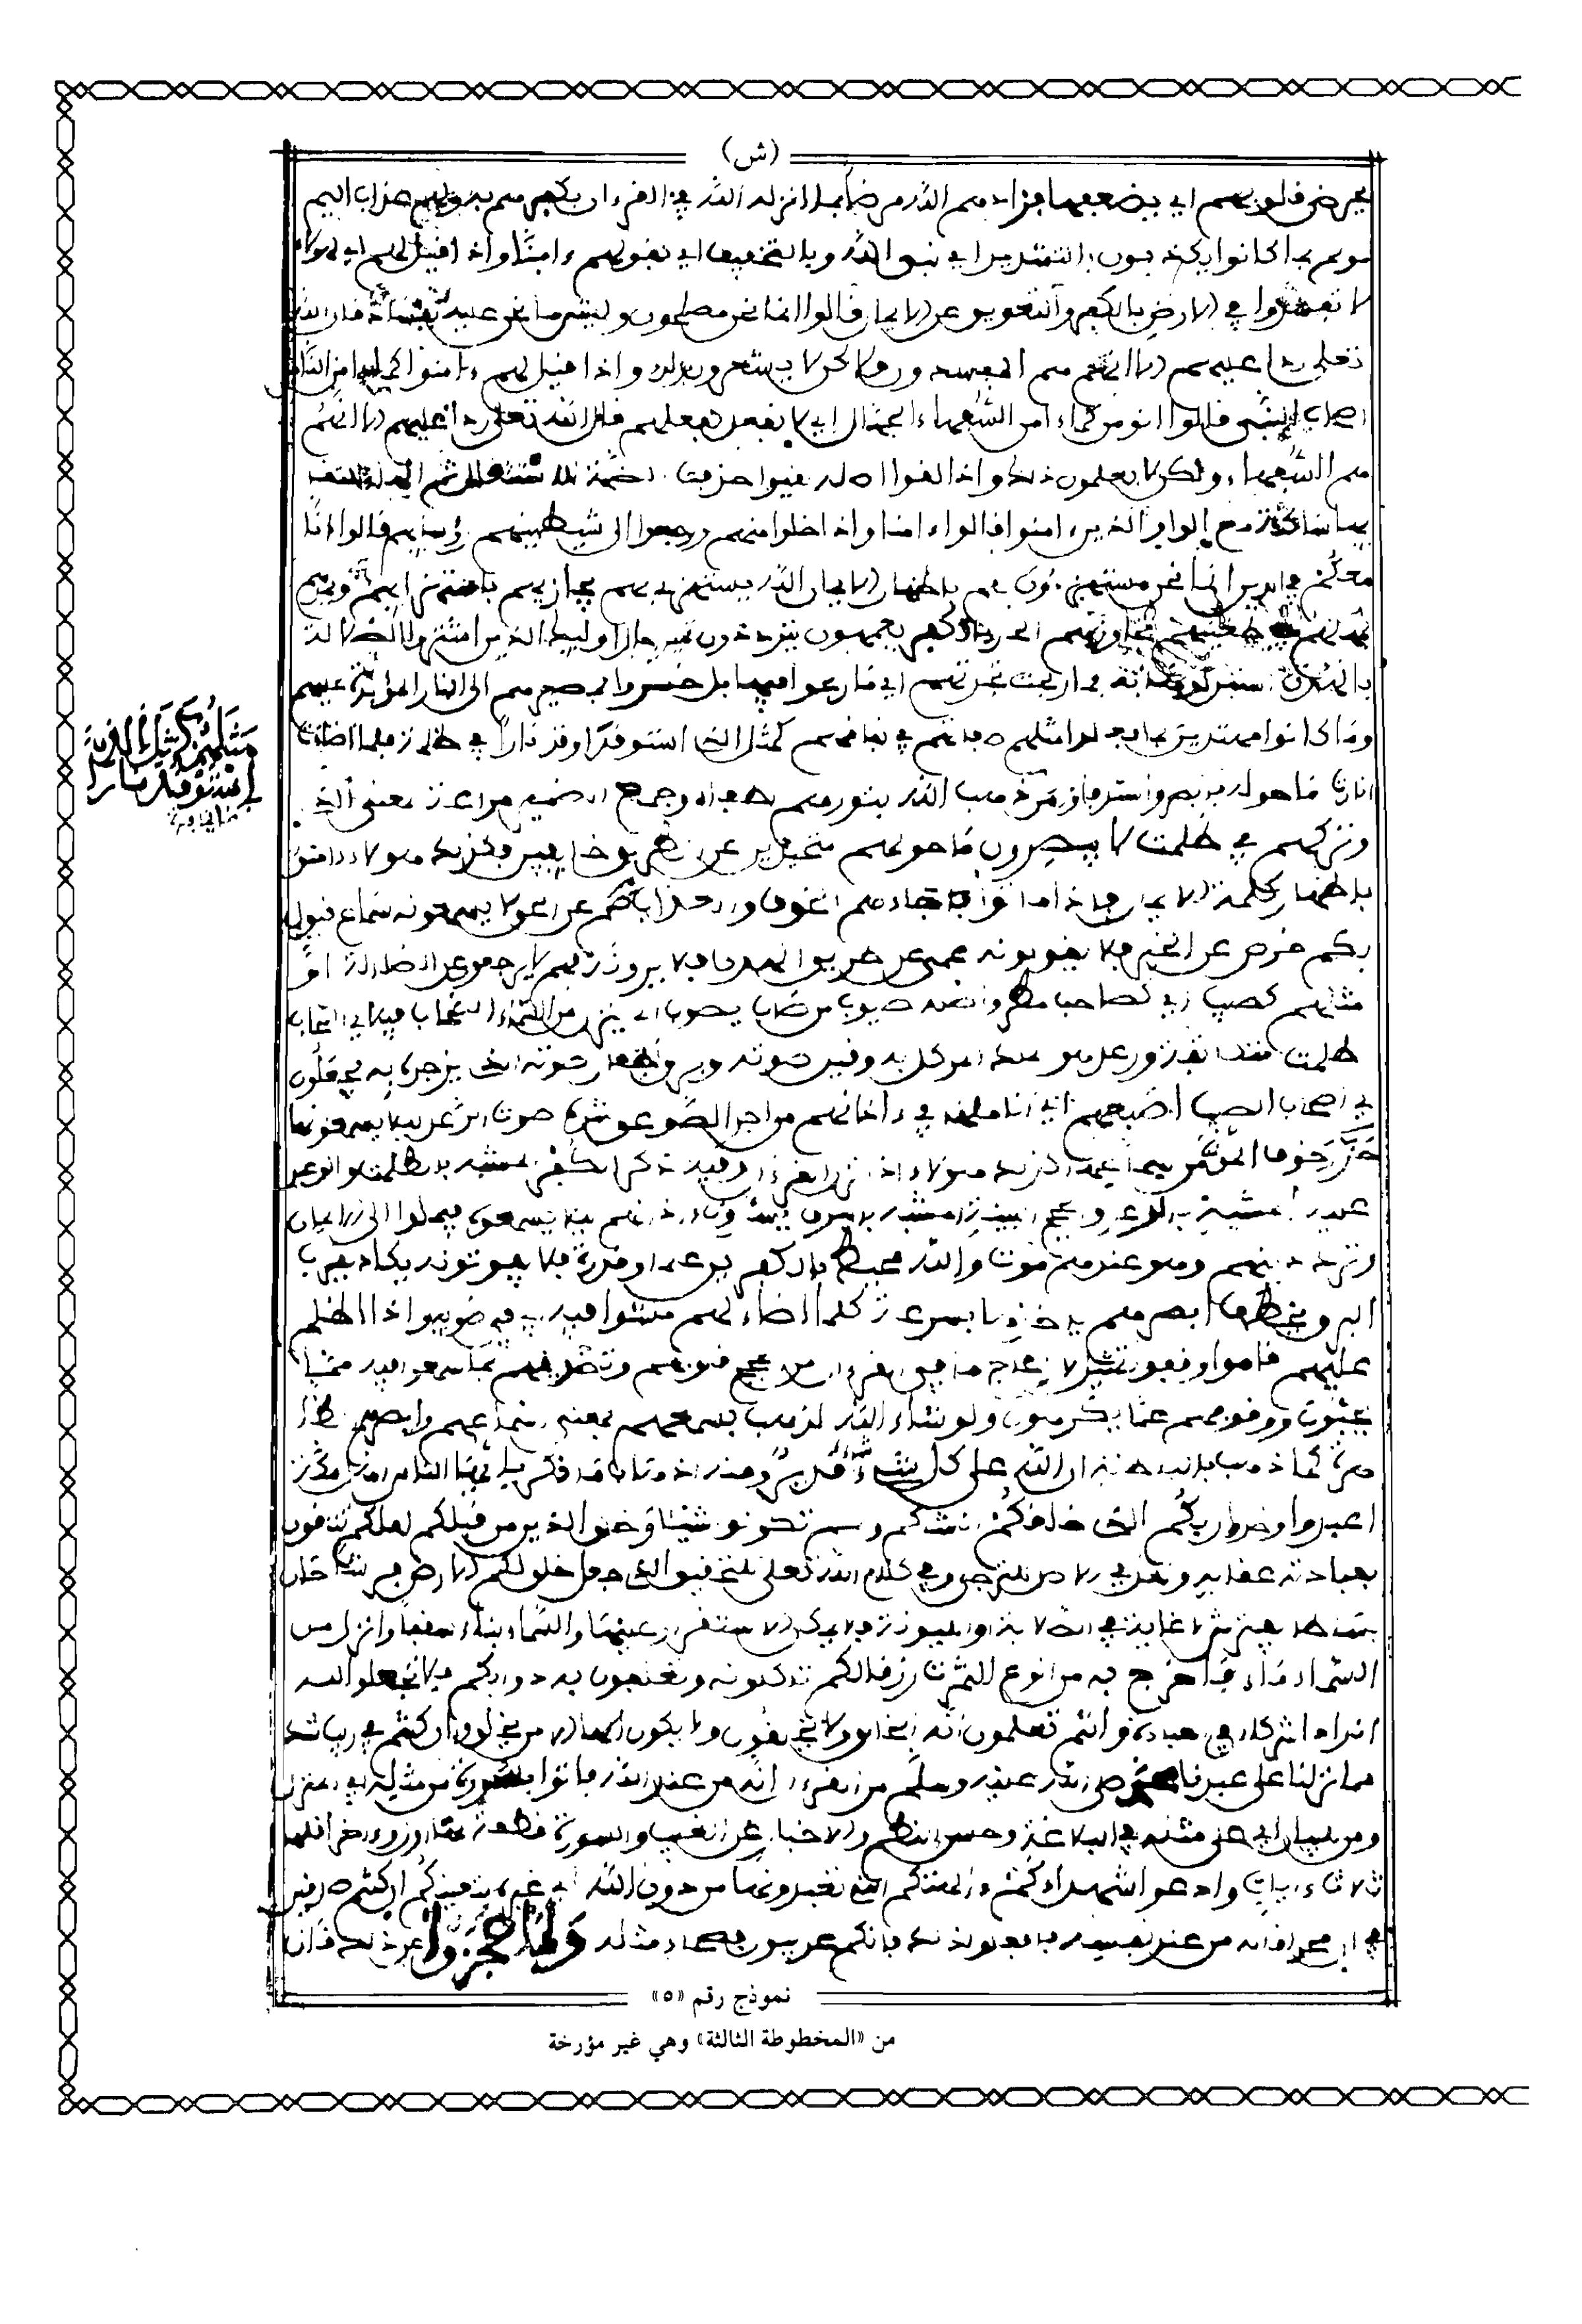 (ش)
يمرض قلوبهم اي يضعفها فزادهم الله مرضا بما انزله الله في القرءان بكفرهم به ولهم عذاب اليم
مولم بما كانوا يكذبون بالتشديد اي نبي الله وبالتخفيف اي في قولهم ءامنا واذا قيل لهم اي لهولاء
لا تفسدوا في الارض بالكفر والتعويق عن الايمان قالوا انما نحن مصلحون وليس ما نحن عليه قال الله
تعلى ردا عليهم الا انهم هم ولاكن لا يشعرون بذلك واذا قيل لهم ءامنوا كما امن الناس
اصحاب النبي قالوا انومن كما ءامن السفهاء الجهال اي لا نفعل كفعلهم قال الله تعلى ردا عليهم الا انهم
هم السفهاء ولكن لا يعلمون ذلك واذا لقوا اصله لقيوا حذفت
ساكنة مع الواو الذين ءامنوا قالوا ءامنا واذا خلوا منهم ورجعوا الى شيطينهم رؤسايهم قالوا انا
معكم في الدين انما نحن مستهزءون بهم باظهار الايمان الله يستهزئ بهم يجازيهم باستهزايهم ويمدهم
يمهلهم طغينهم تجاوزهم الحد بالكفر يعمهون يترددون حال اوليك الذين اشتروا الضلالة
بالهدى به فما ربحت تجرتهم اي ما ربحوا فيها بل خسروا لمصيرهم الى النار المؤبدة عليهم
وما كانوا مهتدين فيما فعلوا مثلهم صفتهم في نفاقهم كمثل الذي استوقد اوقد نارا في ظلمة فلما اضاءت
انارت ما حوله فابصر واستدفا ذهب الله بنورهم اطفاه وجمع الضمير مراعاة لمعنى الذي
وتركهم في ظلمت لا يبصرون ما حولهم متحيرين عن الطريق خايفين فكذلك هولاء امنوا
باظهار كلمة الايمان فاذا ماتوا جاءهم الخوف والعذاب هم صم عن الحق لا يسمعونه سماع قبول
بكم خرس عن الخير فلا يقولونه عمي عن طريق الهدى فلا يرونه فهم لا يرجعون عن الضلالة او
مثلهم كصيب اي كاصحاب مطر واصله صيوب من صاب يصوب اي ينزل من السماء السحاب فيه اي السحاب
ظلمت ورعد هو الملك الموكل به وقيل صوته وبرق صوته الذي يزجره به يجعلون
اي اصحاب الصيب اصبعهم اي اناملها في ءاذانهم من اجل الصوعق شدة صوت الرعد ليلا يسمعونها
حذر خوف الموت من سماعها كذلك هولاء اذا نزل القرءان وفيه ذكر الكفر المشبه بالظلمت والوعيد
عليه المشبه بالرعد والحجج البينة المشبهة بالبرق يسدون ءاذانهم ليلا يسمعوه فيميلوا الى الايمان
وترك دينهم وهو عندهم موت والله محيط بالكفرين علما وقدرة فلا يفوتونه يكاد يقرب
البرق يخطف ابصرهم ياخذها بسرعة كلما اضاء لهم مشوا فيه اي في ضويه واذا اظلم
عليهم قاموا وقفوا تمثيل لازعاج ما في القرءان من الحجج قلوبهم وتصديقهم بما سمعوا فيه مما
يحبون ووقوفهم عما يكرهون ولو شاء الله لذهب بسمعهم بمعنى اسماعهم وابصرهم
كما ذهب بالباطنة ان الله على كل شيء شاءه قدير ومنه اذهاب ما ذكر يايها الناس اي اهل مكة
اعبدوا وحدوا ربكم الذي خلقكم انشاكم ولم تكونوا شيئا وخلق الذين من قبلكم لعلكم تتقون
بعبادته عقابه ولعل في الاصل للترجي وفي كلام الله تعلى للتحقيق الذي جعل خلق لكم الارض فرشا حال
بساطا يفترش لا غاية في الصلابة او الليونة فلا يمكن الاستقرار عليها والسماء بناء سقفا وانزل من
السماء ماء فاخرج به من انوع الثمرت رزقا لكم تاكلونه وتعلفون به دوابكم فلا تجعلوا لله
اندادا شركاء في العبادة وانتم تعلمون انه الخالق ولا يخلقون ولا يكون الها الا من يخلق وان كنتم في ريب شك
مما نزلنا على عبدنا محمد صلى الله عليه وسلم من القرءان انه من عند الله فاتوا بسورة من مثله اي المنزل
ومن للبيان اي هي مثله في البلاغة وحسن النظم والاخبار عن الغيب والسورة قطعة لها اول وءاخر اقلها
ثلاث ءايات وادعوا شهداءكم ءالهتكم التي تعبدونها من دون الله اي غيره لتعينكم ان كنتم صدقين
في ان محمدا قاله من عند نفسه فافعلوا ذلك فانكم عربيون فصحاء مثله ولما عجزوا عن ذلك قال
مثلهم كمثل الذي
استوقد نارا
نموذج رقم «٥»
من «المخطوطة الثالثة» وهي غير مؤرخة